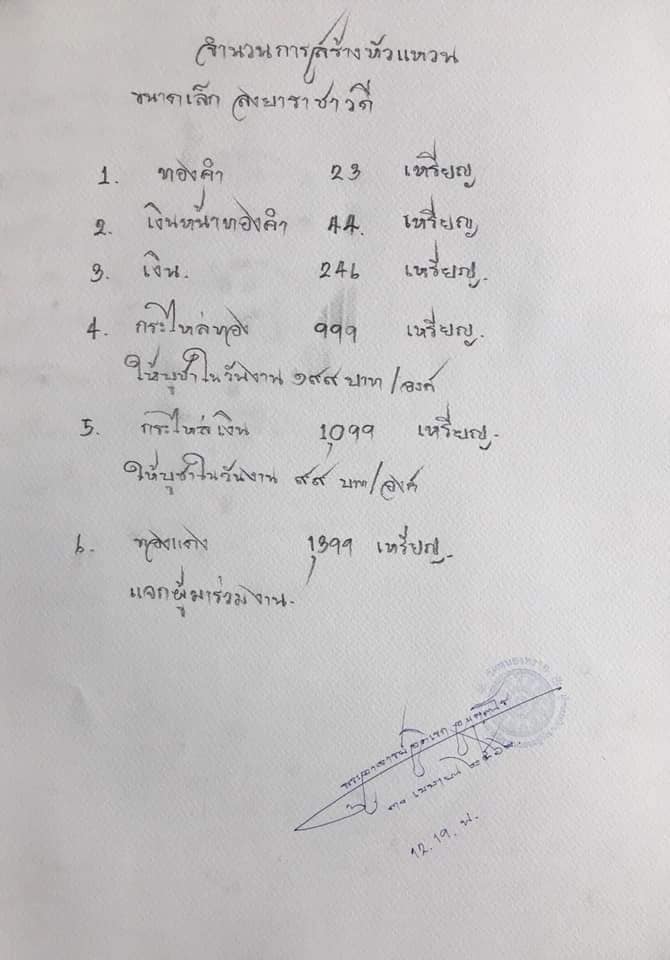 จำนวนการสร้างหัวแหวน
ขนาดเล็ก ลงยาราชาวดี
1. ทองคำ 23 เหรียญ
2. เงินหน้าทองคำ 44. เหรียญ
3. เงิน. 246 เหรียญ.
4. กระไหล่ทอง 999 เหรียญ.
ให้บูชาในวันงาน ๑๙๙ บาท/องค์
5. กะไหล่เงิน 1,099 เหรียญ.
ให้บูชาในวันงาน ๙๙ บาท/องค์
6. ทองแดง 1,399 เหรียญ.
แจกผู้มาร่วมงาน.
พระอาจารย์
๓๐ เมษายน ๒๕๖๒.
12.19. น.